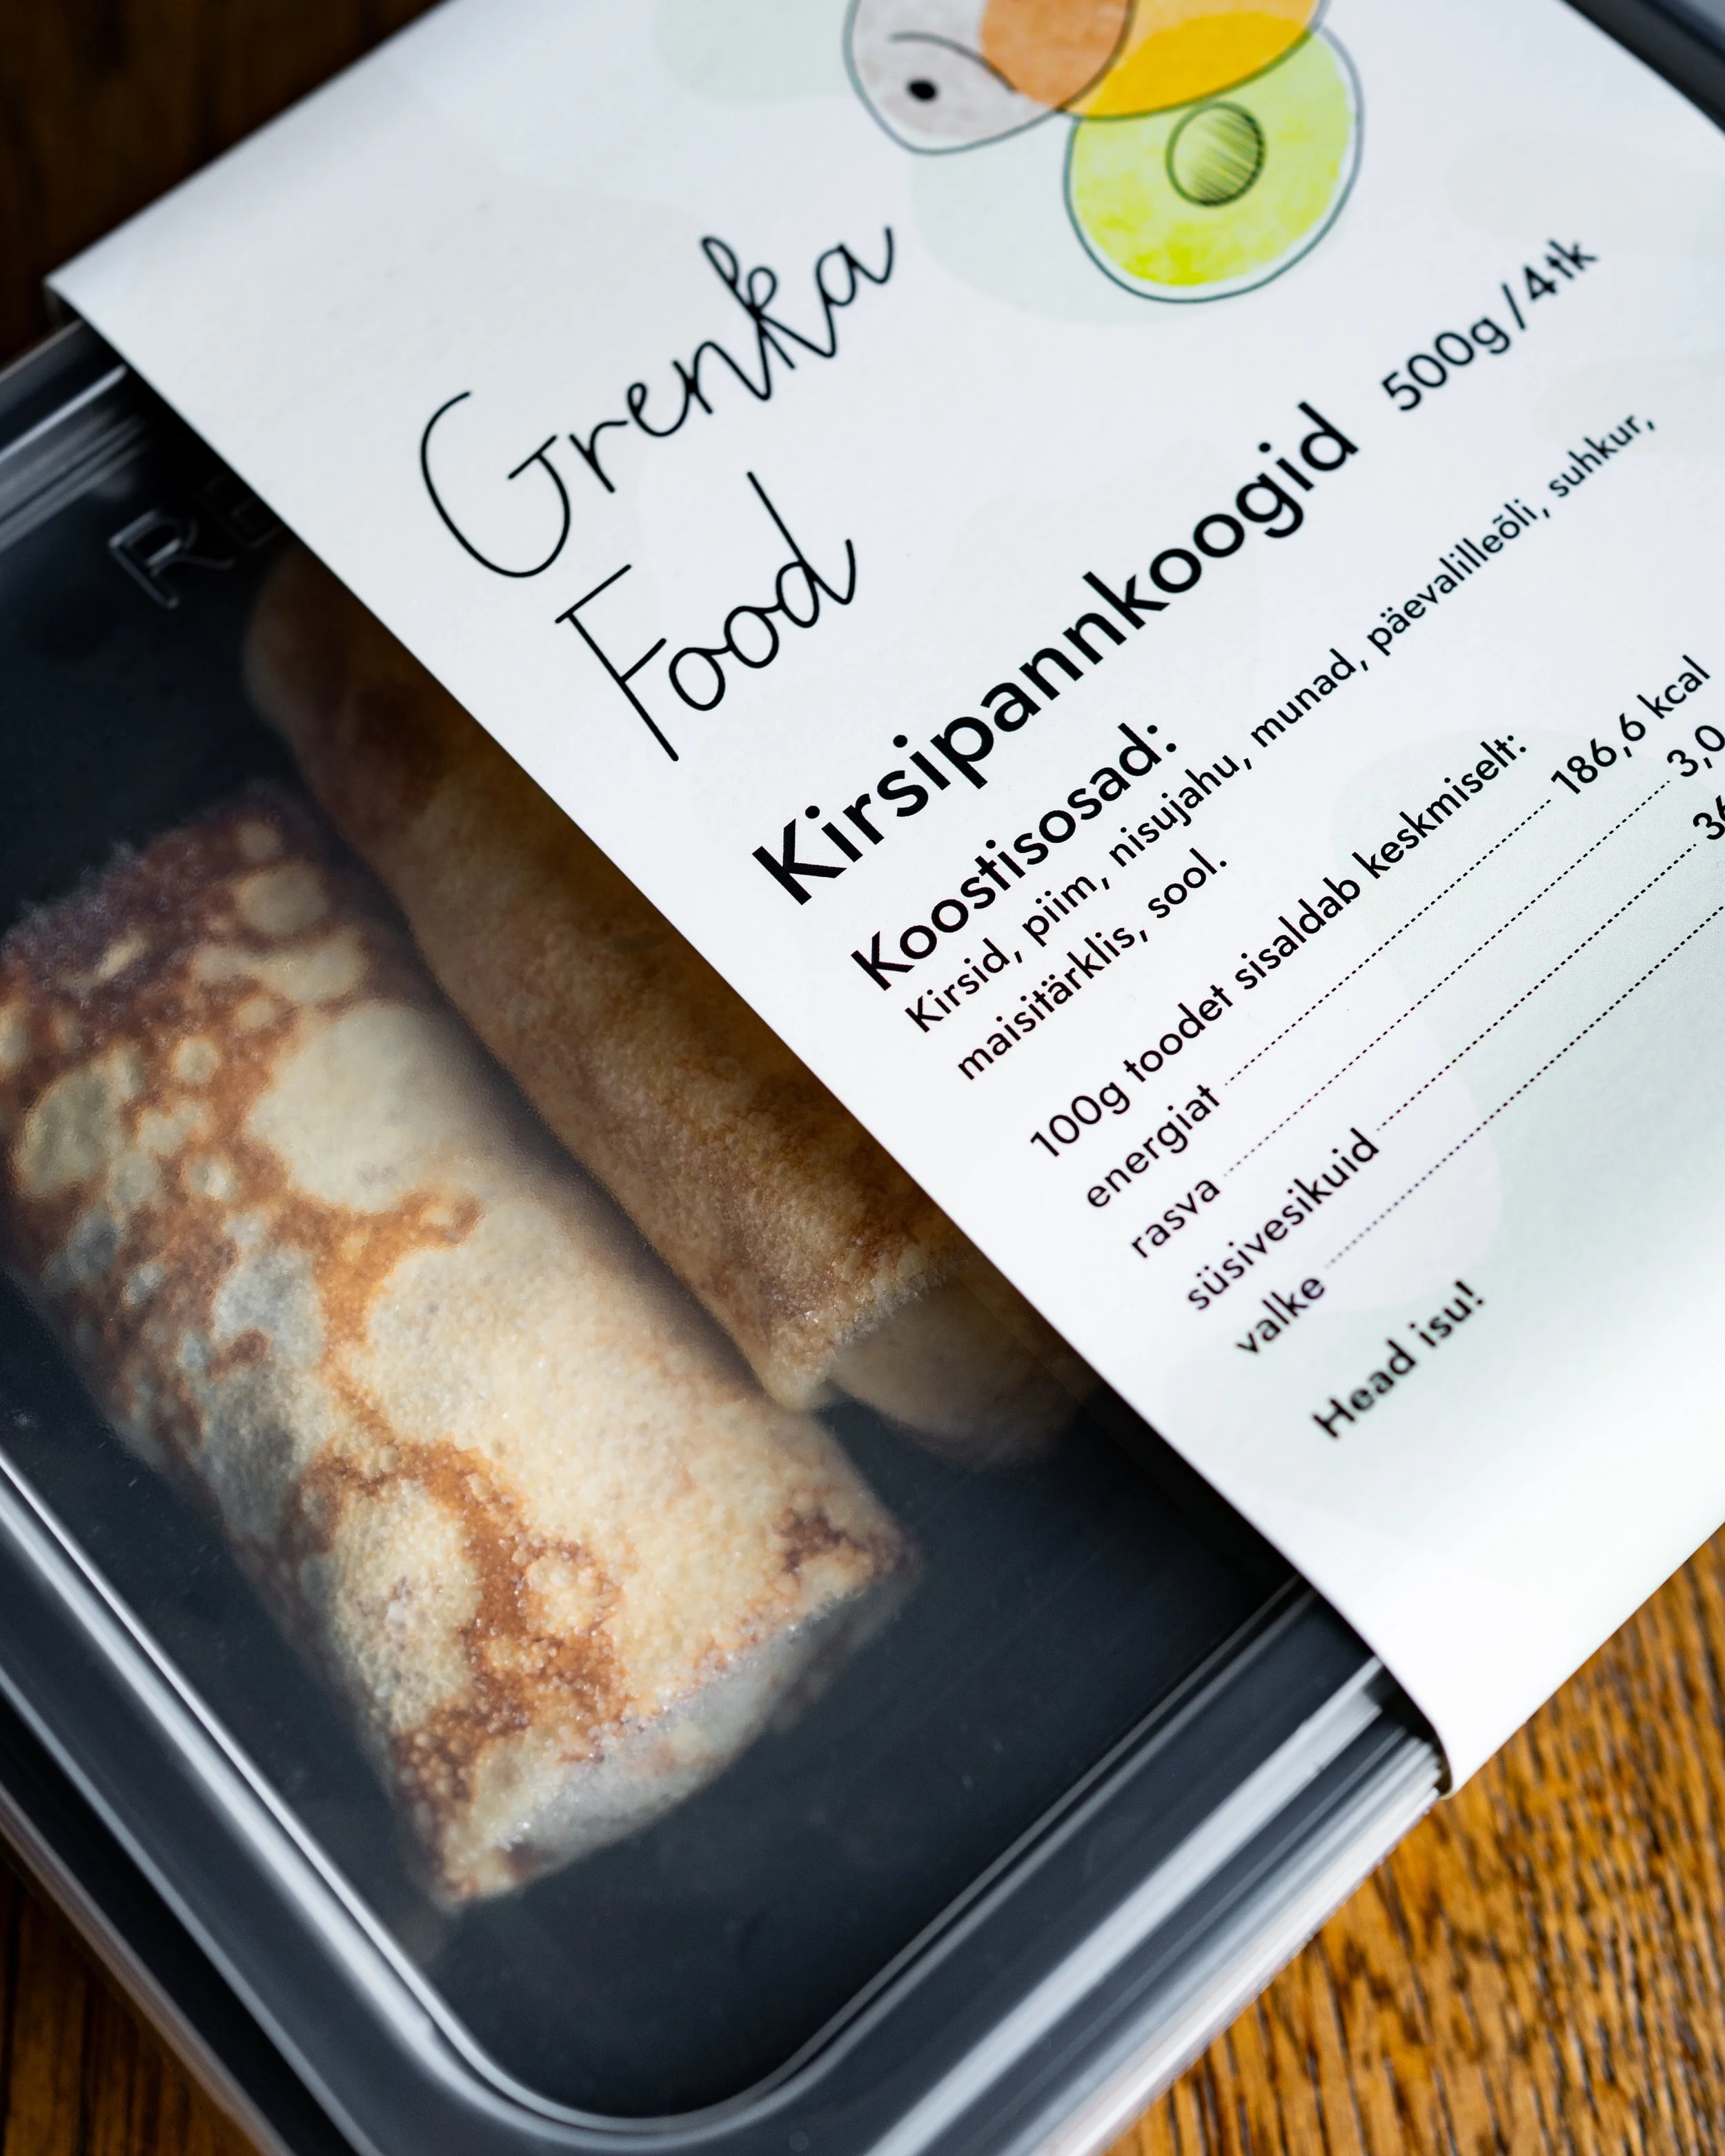 Grenka
Food
Kirsipannkoogid 500g/4tk
Koostisosad:
Kirsid, piim, nisujahu, munad, päevalilleõli, suhkur,
maisitärklis, sool.
100g toodet sisaldab keskmiselt:
energiat 186,6 kcal
rasva 3,0
süsivesikuid 36
valke
Head isu!